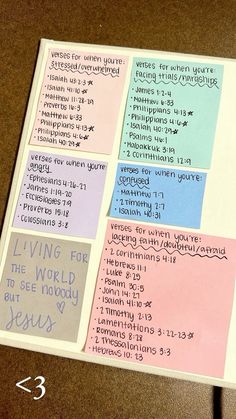 verses for when you're:
stressed/overwhelmed
• Isaiah 43:2-3 *
• Isaiah 41:10 *
• Matthew 11:28-29
• Proverbs 16:3
• Matthew 6:33
• Philippians 4:13 *
• Philippians 4:6 *
• Isaiah 40:29 *
verses for when you're:
facing trials/hardships
• James 1:2-4
• Matthew 6:33
• Philippians 4:13 *
• Philippians 4:6 *
• Isaiah 40:29 *
• Psalms 46:1
• Habakkuk 3:19
• 2 Corinthians 12:9
verses for when you're:
angry
• Ephesians 4:26-27
• James 1:19-20
• Ecclesiastes 7:9
• Proverbs 19:18
• Colossians 3:8
verses for when you're:
confused
• Matthew 7:7
• 2 Timothy 2:7
• Isaiah 40:31
LIVING FOR
THE WORLD
TO SEE nobody
BUT
Jesus
verses for when you're:
lacking faith/doubtful/afraid
• 2 Corinthians 4:18
• Hebrews 11:1
• Luke 8:25
• Psalm 30:5
• John 14:27
• Isaiah 41:10 *
• 2 Timothy 2:13
• Lamentations 3:22-23 *
• Romans 8:28
• 2 Thessalonians 3:3
• Hebrews 10:23
<3